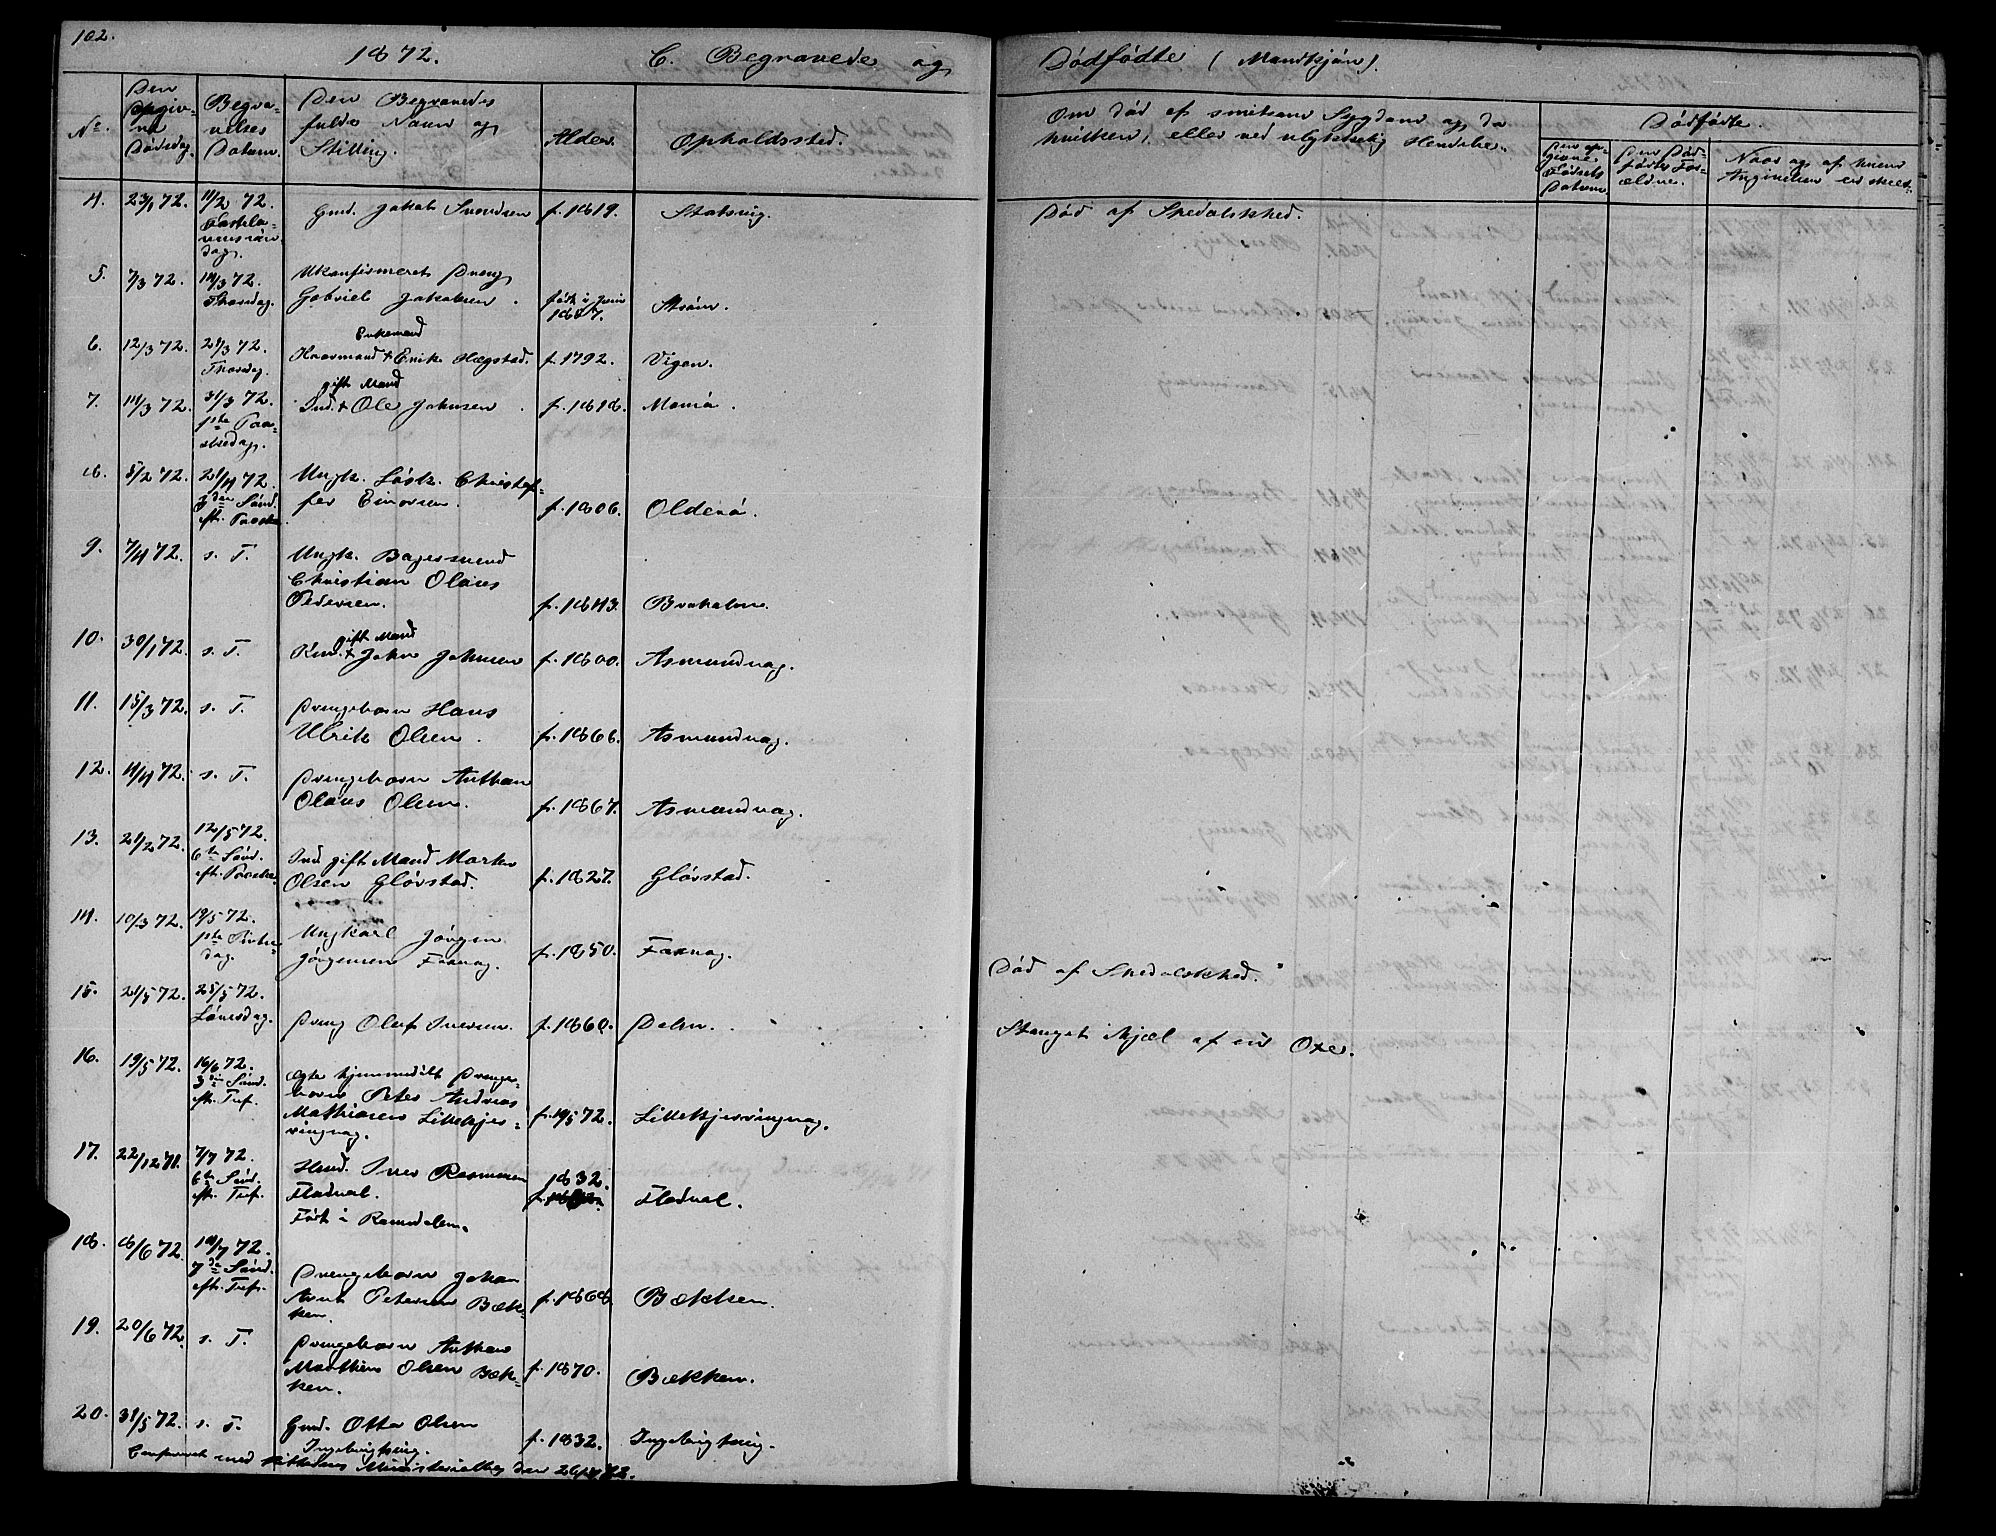 102.
1872. C. Begravede og
Dødfødte (Mandkjøn).
No.
Den
opgiv-
ne
Dødsdag.
Begra-
velses
Datum.
Den Begravedes
fulde Navn og
Stilling.
Alder.
Opholdssted.
Om død af smitsom Sygdom og da
hvilken, eller ved ulykkelig Hendelse.
Dødfødte.
Den op-
givne
Fødsels
Datum
Den Død-
fødtes For-
ældre.
Naar og af hvem
Angivelsen er skeet.
4. 23/1 72. 11/2 72.
Fastela-
vnssøn-
dag.
Gmd. Jakob Svendsen f. 1819. Statsvig. Død af Spedalskhed.
5. 7/3 72. 14/3 72.
Thorsdag.
Ukonfirmeret Dreng
Gabriel Jakobsen. født i Juni
1857. Strøm.
6. 12/3 72. 21/3 72.
Thorsdag.
Enkemand
Kaarmand + Erik Hægstad. f. 1792. Vigen.
7. 14/3 72. 31/3 72.
1ste Paa-
skedag.
gift Mand
Ind. + Ole Johnsen. f. 1818. Momia.
8. 5/2 72. 21/4 72.
3die Sønd.
eft. Paaske.
Ungk. Løsk. Christof-
fer Einarsen. f. 1806. Olderø.
9. 7/4 72. s. T. Ungk. Bagersvend
Christian Olaus
Pedersen. f. 1843. Brakalen.
10. 30/1 72. s. T. gift Mand
Kmd. + John Johnsen f. 1800. Asmundvag.
11. 15/3 72. s. T. Drengebarn Hans
Ulrik Olsen. f. 1866. Asmundvag.
12. 14/4 72. s. T. Drengebarn Anthon
Olaus Olsen. f. 1867. Asmundvag.
13. 21/2 72. 12/5 72.
6te Sønd.
eft. Paaske.
Ind gift Mand Morten
Olsen Glørstad. f. 1827. Glørstad.
14. 10/3 72. 19/5 72.
1ste Pintse-
dag.
Ungkarl Jørgen
Jørgensen Faxvag. f. 1850. Faxvag. Død af Spedalskhed.
15. 21/5 72. 25/5 72.
Løverdag.
Dreng Oluf Iversen. f. 1860. Dolm. Stanget ihjæl af en Oxe.
16. 19/5 72. 16/6 72.
3die Sønd.
eft. Tref.
Ægte hjemmedøbt Drenge-
barn Peter Andreas
Mathiasen Lillekjer-
ringvag. f. 19/5 72. Lillekjerringvag.
17. 22/12 71. 7/7 72.
6te Sønd.
eft. Tref.
Hmd. Iver Rasmusen
Fladval.
Født i Romsdalen. 1832. Fladval.
18. 8/6 72. 14/7 72.
7de Sønd.
eft. Tref.
Drengebarn Johan
Arnt Petersen Bæk-
ken. f. 1868. Bækken.
19. 20/6 72. s. T. Drengebarn Anthon
Marthin Olsen Bæk-
ken. f. 1870. Bækken.
20. 31/5 72. s. T. Gmd. Otto Olsen
Ingebrigtsvig. f. 1832. Ingebrigtsvig.
Confereret med Hitterens Ministerialbog den 26/12 72.